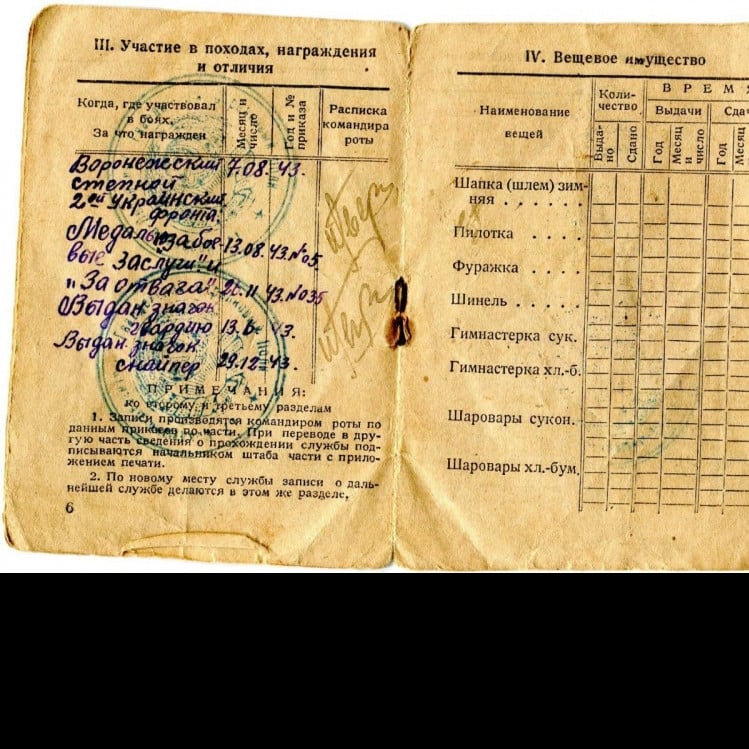 III. Участие в походах, награждения
и отличия
Когда, где участвовал
в боях.
За что награжден
Месяц и
число
Год и №
приказа
Расписка
командира
роты
Воронежский 7.08. 43.
степной
2ой Украинский
фронта.
Медалью за бое- 13.08. 43. №05.
вые заслуги
"За отвагу" 43. №035
Выдан значок
гвардию 13.6 43.
Выдан значок
снайпер 29.12 43.
ПРИМЕЧАНИЯ:
ко второму и третьему разделам
1. Записи производятся командиром роты по
данным приказов по части. При переводе в дру-
гую часть сведения о прохождении службы под-
писываются начальником штаба части с прило-
жением печати.
2. По новому месту службы записи о даль-
нейшей службе делаются в этом же разделе.
6
IV. Вещевое имущество
Наименование
вещей
Коли-
чество
ВРЕМЯ
Выдачи
Сдач
Выда-
но
Сдано
Год
Месяц
и
число
Год
Месяц
Шапка (шлем) зим-
няя . . . . . .
Пилотка . . . .
Фуражка . . . .
Шинель . . . .
Гимнастерка сук.
Гимнастерка хл.-б.
Шаровары сукон.
Шаровары хл.-бум.